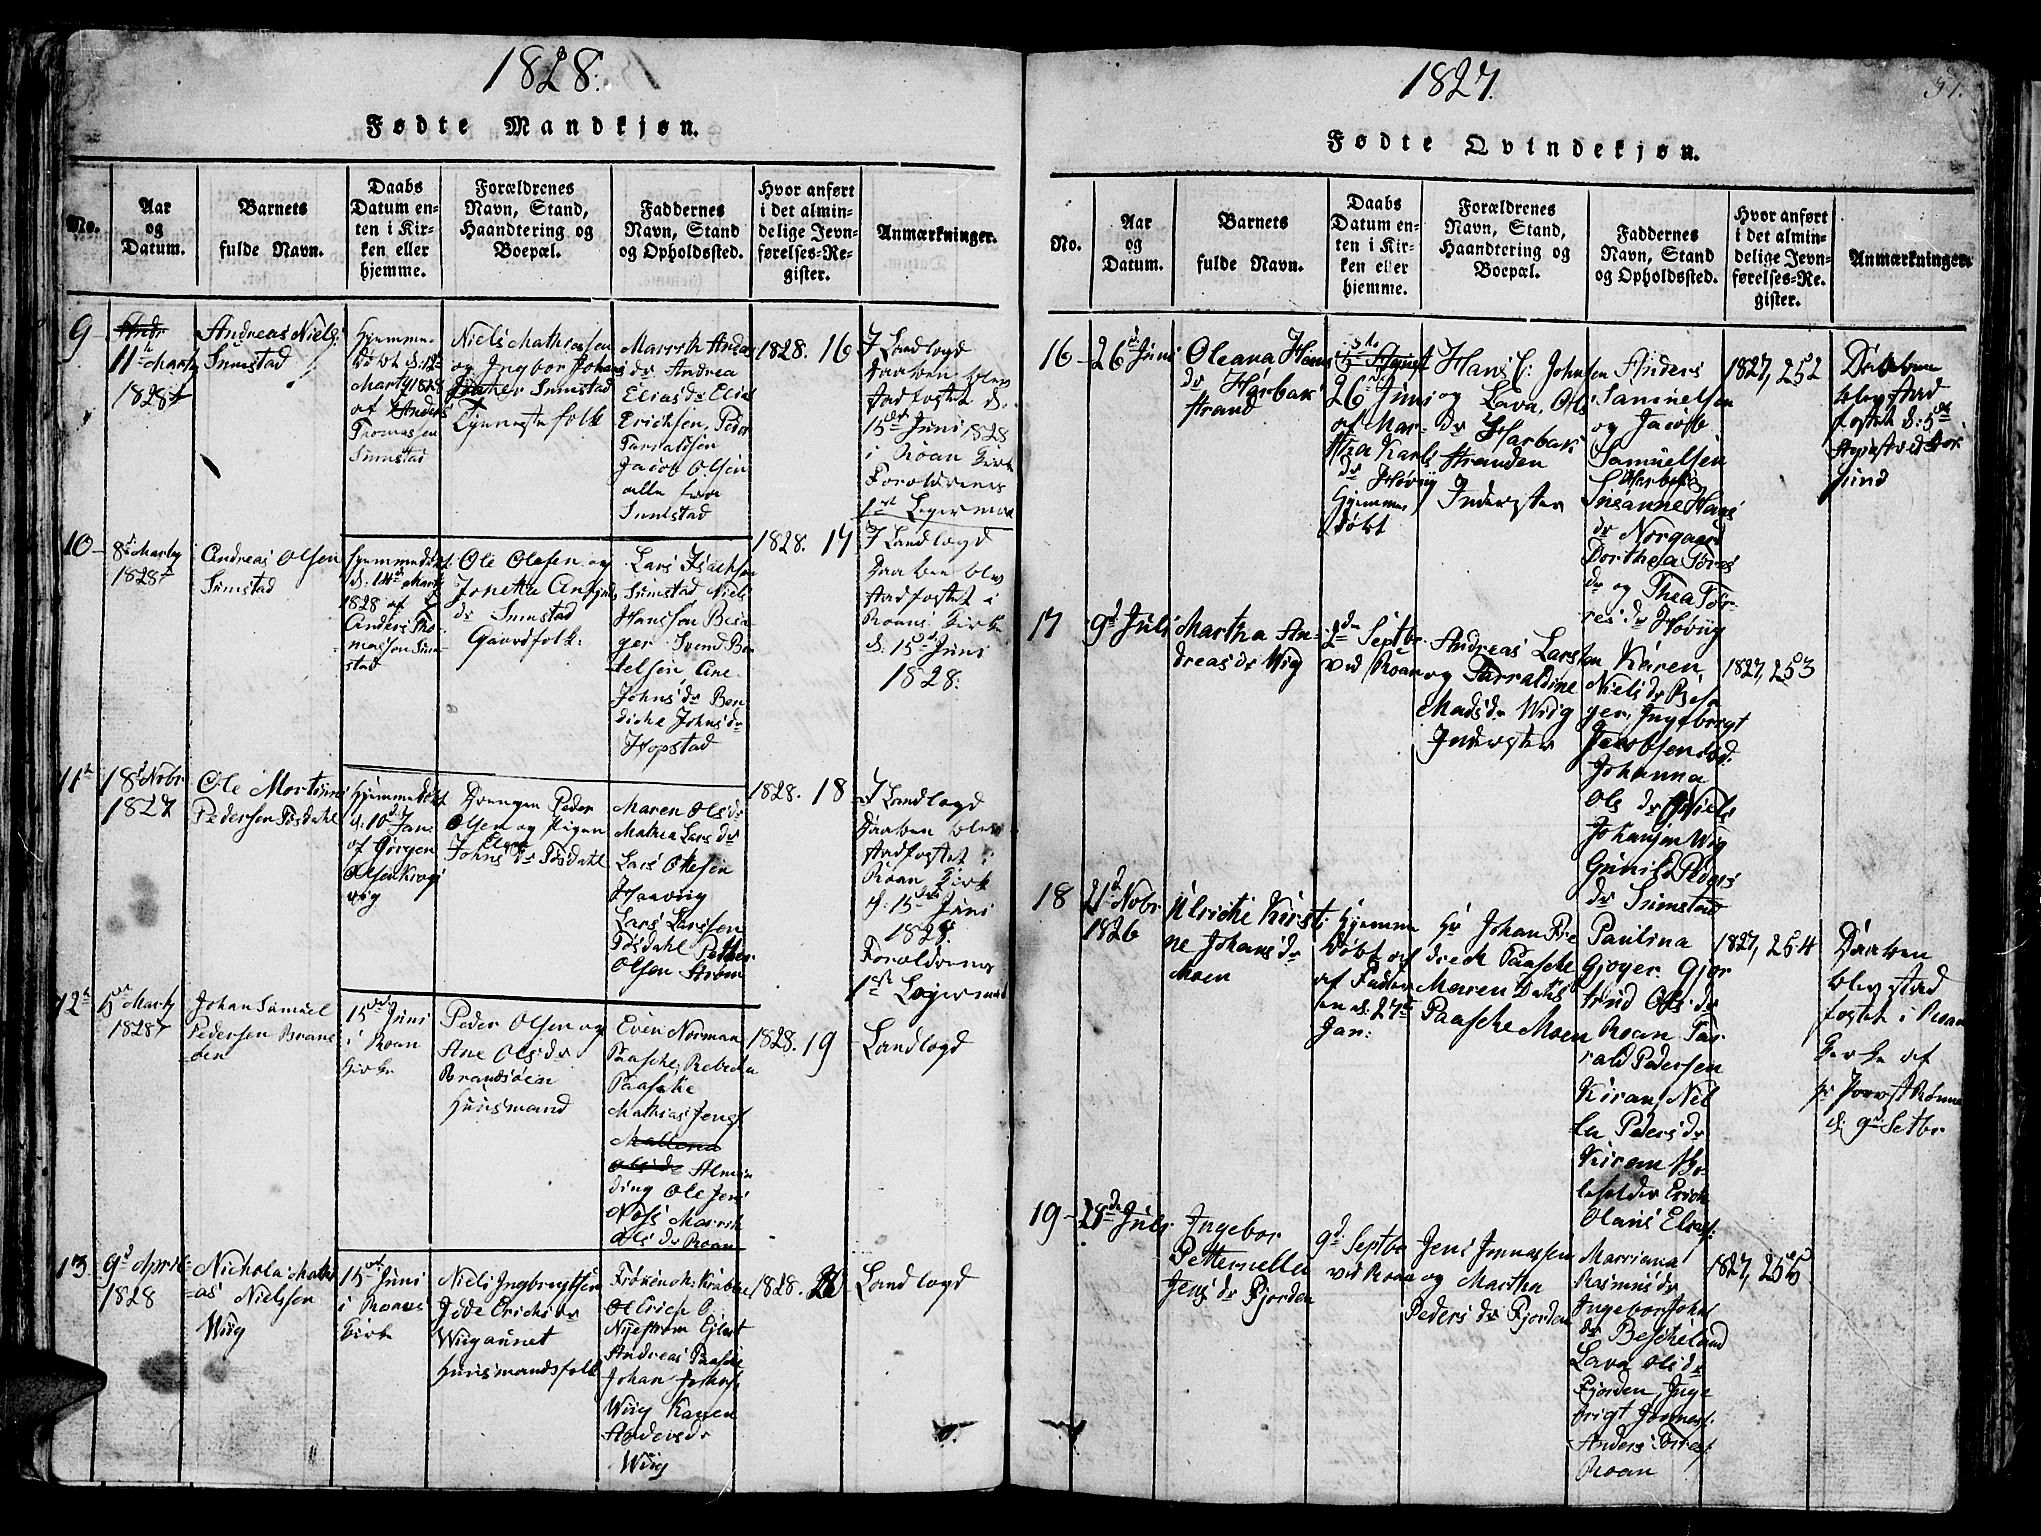 1828.
Fødte Mandkjøn.
No.
Aar
og
Datum.
Barnets
fulde Navn.
Daabs
Datum en-
ten i Kir-
ken eller
hjemme.
Forældrenes
Navn, Stand,
Haandtering og
Boepæl.
Faddernes
Navn, Stand
og Opholdssted.
Hvor anført
i det almin-
delige Jevn-
førelses-Re-
gister.
Anmærkninger.
9
11te Marty
1828
Andreas Niels:
Sumstad
Hjemme-
døbt d: 12te
Marty 1828
af Anders
Thomassen
Sumstad
Niels Mathiesen
og Ingbor Johans
Sumstad
folk
Marrith Andas
dr Andrea
Eliasdr Elia
Erichsen, Peder
Tarraldsen
Jacob Olsen
alle fra
Sumstad
1828. 16
I Landlogd
Daaben blev
stadfæstet d:
15de Juni 1828
i Roan Kirke
Forældrenes
1ste Leiermaal
10
8de Marty
1828
Andreas Olsen
Sumstad
Hjemmedøbt
d: 14de Marty
1828 af
Anders Tho-
massen Sum-
stad
Ole Olesen og
Jonetta
dr Sumstad
Gaardfolk:
Lars Isachsen
Sumstad Niels
Hansson Bes-
ger Svend Be-
telsen Ane
Johnsdr Ben-
dicke Johnsdr
Hopstad
1828. 17
I Landlogd
Daaben blev
stadfæstet i
Roans Kirke
d: 15de Juni
1828:
11
18de Nobr
1827
Ole Mortinus
Pedersen Tøsdahl
Hjemmedøbt
d: 10de Jan:
af Jørgen
Olsen Krogs
wig
Drengen Peder
Olsen og Pigen
Elen
Johnsdr Tøsdahl
Maren Olsdr
Mathea Larsdr
Lars Olesen
Haavig
Lars Larssen
Tøsdahl Petter
Olsen Strøm
1828. 18
I Landlogd
Daaben blev
stadfæstet i
Roan Kirk
d: 15de Juni
1828.
Forældrenes
1ste Leiermaal
12
5te Marty
1828
Johan Samuel
Pedersen Brans
øen
15de Juni
i Roan
Kirke
Peder Olsen og
Ane Olsdr
Brandsøen
Huusmand
Even Norman
Paaske, Rebecka
Paaske
Mathias Jensf
Mallena
Olsdr Almen
ding Ole Jens
Næss Marrit
Olsdr Roan
1828. 19
Landlogd
13
9de April
1828
Nicholai Mathi-
as Nielssen
Wiig
15de Juni
i Roans
Kirke
Niels Ingbrygtsen
Jede Erichsdr
Wiigaunet
Huusmandsfolk
Frøken M: Krabbe
Olerich C.
Nyestrøm Ejlert
Andreas Paaske
Johan
Wiig Karen
Andersdr
Wiig
1828. 20
Landlogd
1827.
37.
Fødte Qvindekjøn.
No.
Aar
og
Datum.
Barnets
fulde Navn.
Daabs
Datum en-
ten i Kir-
ken eller
hjemme.
Forældrenes
Navn, Stand,
Haandtering og
Boepæl.
Faddernes
Navn, Stand
og Opholdssted.
Hvor anført
i det almin-
delige Jevn-
førelses-Re-
gister.
Anmærkninger.
16
26de Juni
Oleana Hans
dr Harbak
strand
26de Juni
af Mar-
tha Karls
dr Høvig
Hjemme
døbt
Hans C: Johnsen
og Lava Ols
dr Harbak
stranden
Inderster
Anders
Samuelsen
og Jacob
Samuelsen
Harbak
Susanne Hans
dr Norgaard
Dorthea Tøres
dr og Thea Tør-
resdr Høviig
1827, 252
Daaben
blev stad
fæstet d: 5te
August ved Bes-
sund
17
9de Juli
Martha An-
dreasdr Wiig
2de Septbr
ved Roan
Andreas Larsen
og Tarraldine
Madsdr Wiig
Inderster
Karen
Nielsdr Bes-
ger, Ingebrygt
Jacobsen ibd.
Johanna
Olsdr Niels
Johansen Wiig
Gunild Peders
dr Sumstad
1827, 253
18
21de Nobr
1826
Ulriche Kirsti
ne Johansdr
Moen
Hjemme
døbt af
af Fader
en d: 27de
Jan:
Hr Johan Fre
drech Paaske
Maren Dahl
Paaske Moen
Paulina
Gjøger Gjør
trud Olsdr
Roan Tar
rald Pedersen
Kiran, Nil
la Pedersdr
Kiran
Erich
Olaus
1827, 254
Daaben
blev stad
fæstet i Roan
Kirke af
Hr Provst Rønne
d: 9de Setbr
19
28de Juli
Ingebor
Petternella
Jensdr Fjorden
9de Septbr
ved Roan
Jens Jonnassen
og Martha
Pedersdr Fjorden
Marriana
Rasmusdr
Ingebor Johns
dr Beskeland
Lava Olsdr
Fjorden, Inge
brigt Jonnasf.
Anders Torresf
Roan
1827, 255